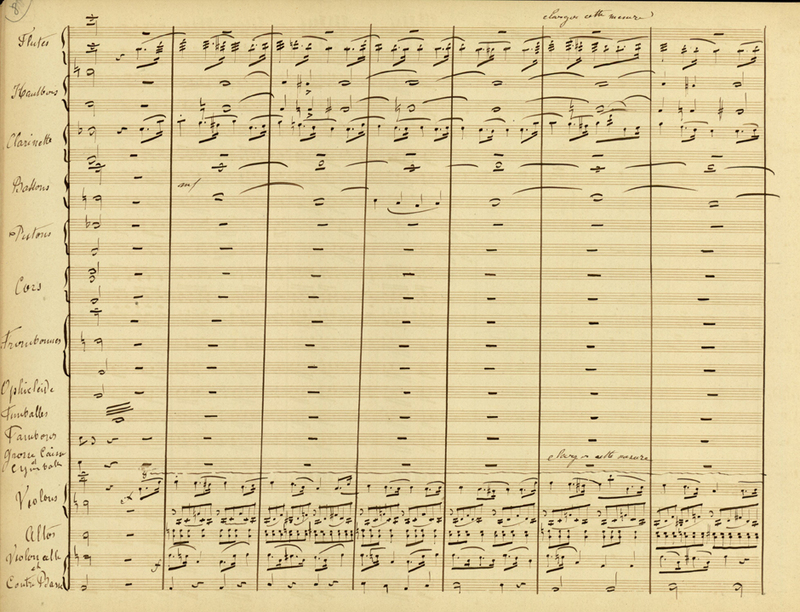 8
elargir cette mesure
Flûtes
Hautbois
Clarinette
mf
Bassons
Pistons
Cors
Trombonnes
Ophicleide
Timballes
Tambours
Grosse Caisse
et
Cymbale
elargir cette mesure
Violons
Altos
Violoncelle
et
Contre Basse